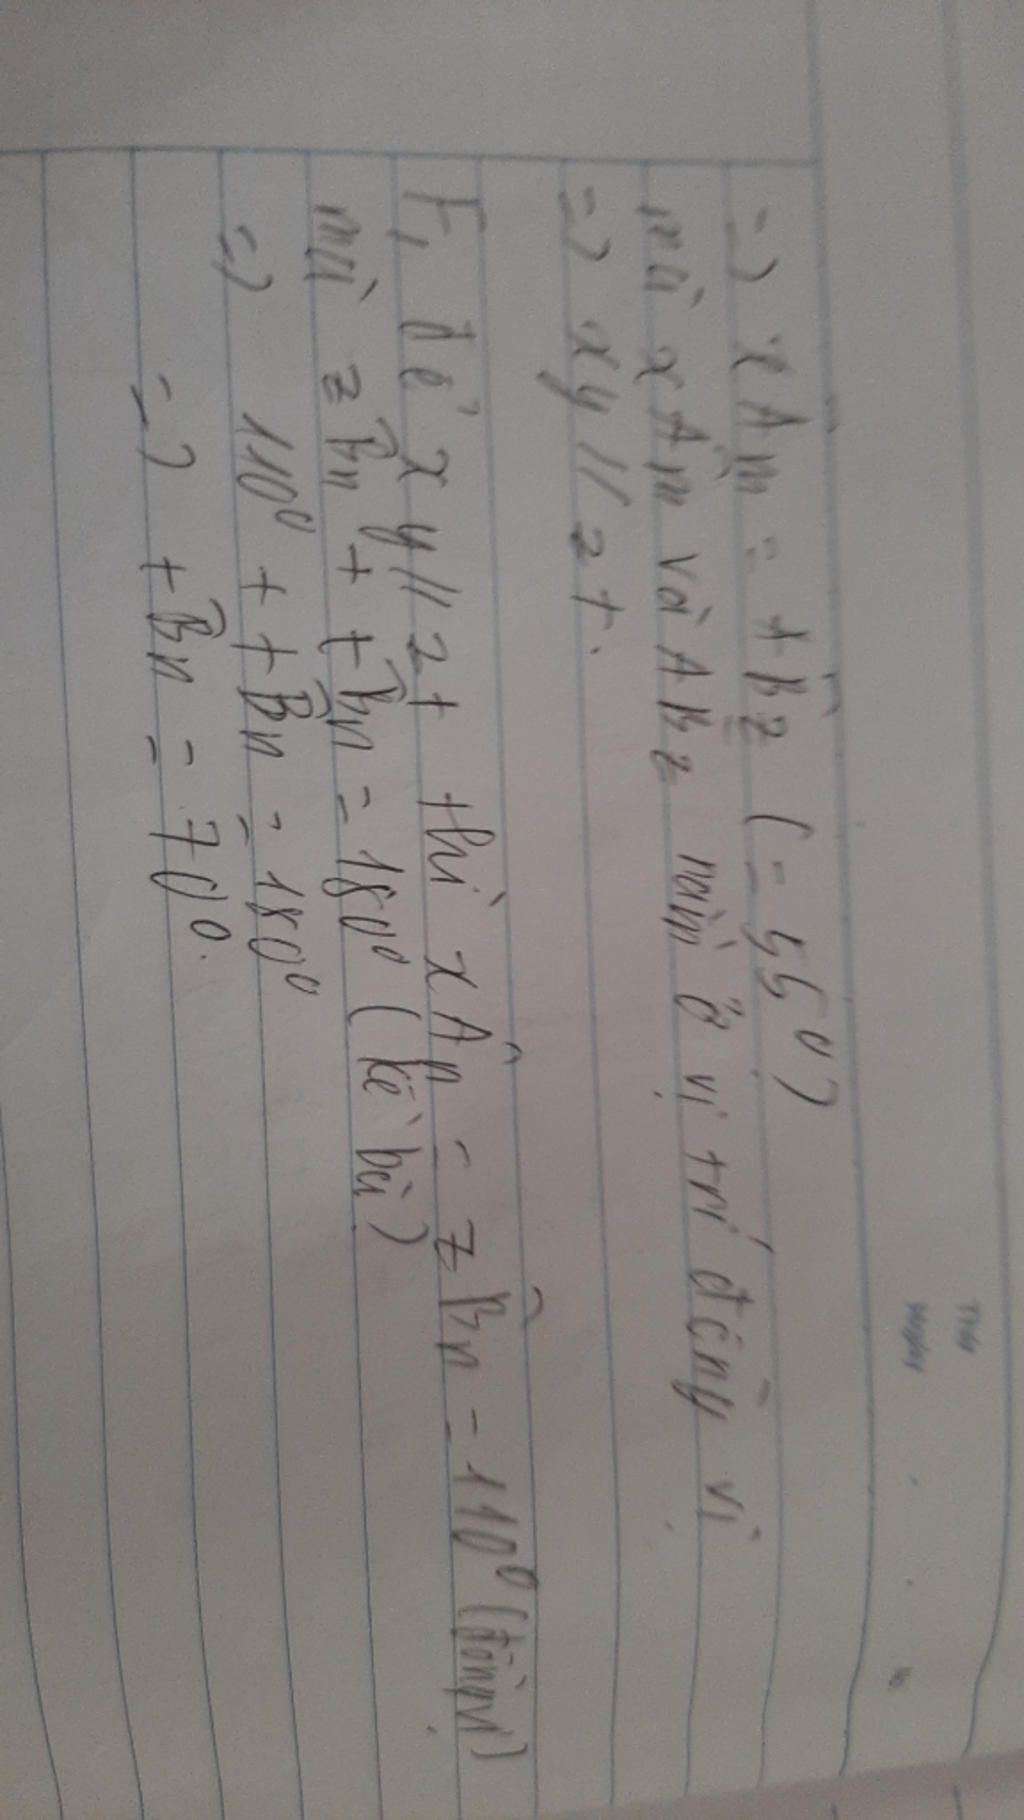 => xÂm = tB̂z (= 55°)
mà xÂm và ABz nằm ở vị trí đồng vị
=> xy // zt.
F, để xy // zt thì xÂn = zB̂n = 110° (đồng vị)
mà zB̂n + tB̂n = 180° (kề bù)
=> 110° + tB̂n = 180°
=> tB̂n = 70°.
Thứ
Ngày